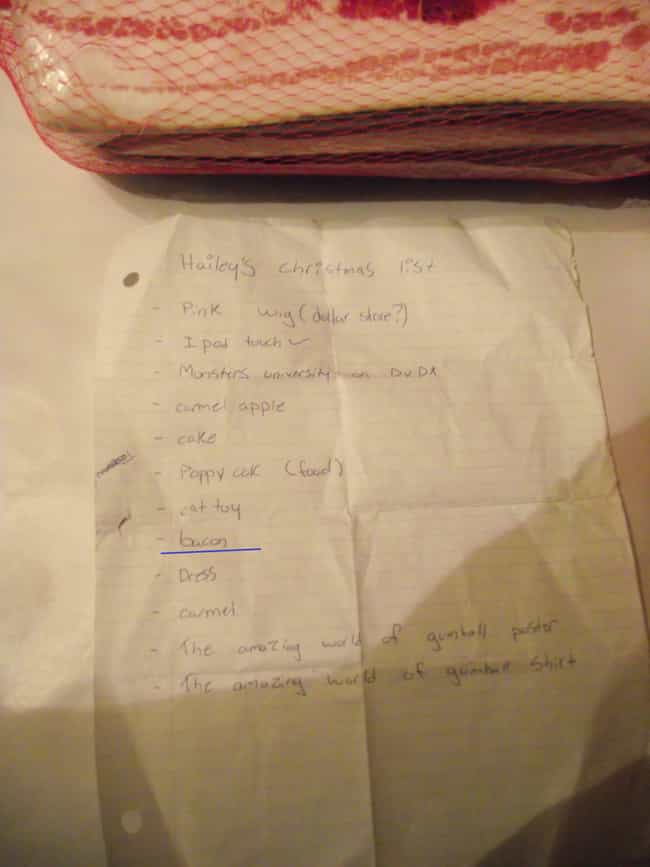 Hailey's christmas list
- Pink wig (dollar store?)
- I pod touch ✓
- Monsters university on DVD
- carmel apple
- cake
- Poppy cok (food)
- cat toy
- bacon
- Dress
- carmel
- The amazing world of gumball poster
- The amazing world of gumball shirt